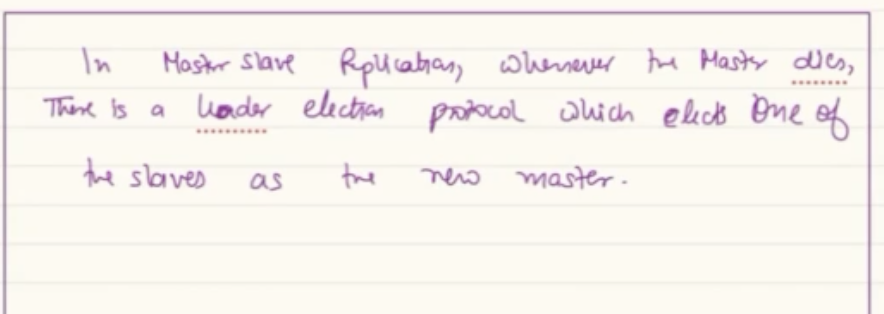 In Master slave Replication, whenever the Master dies,
There is a leader election protocol which elects One of
the slaves as the new master.